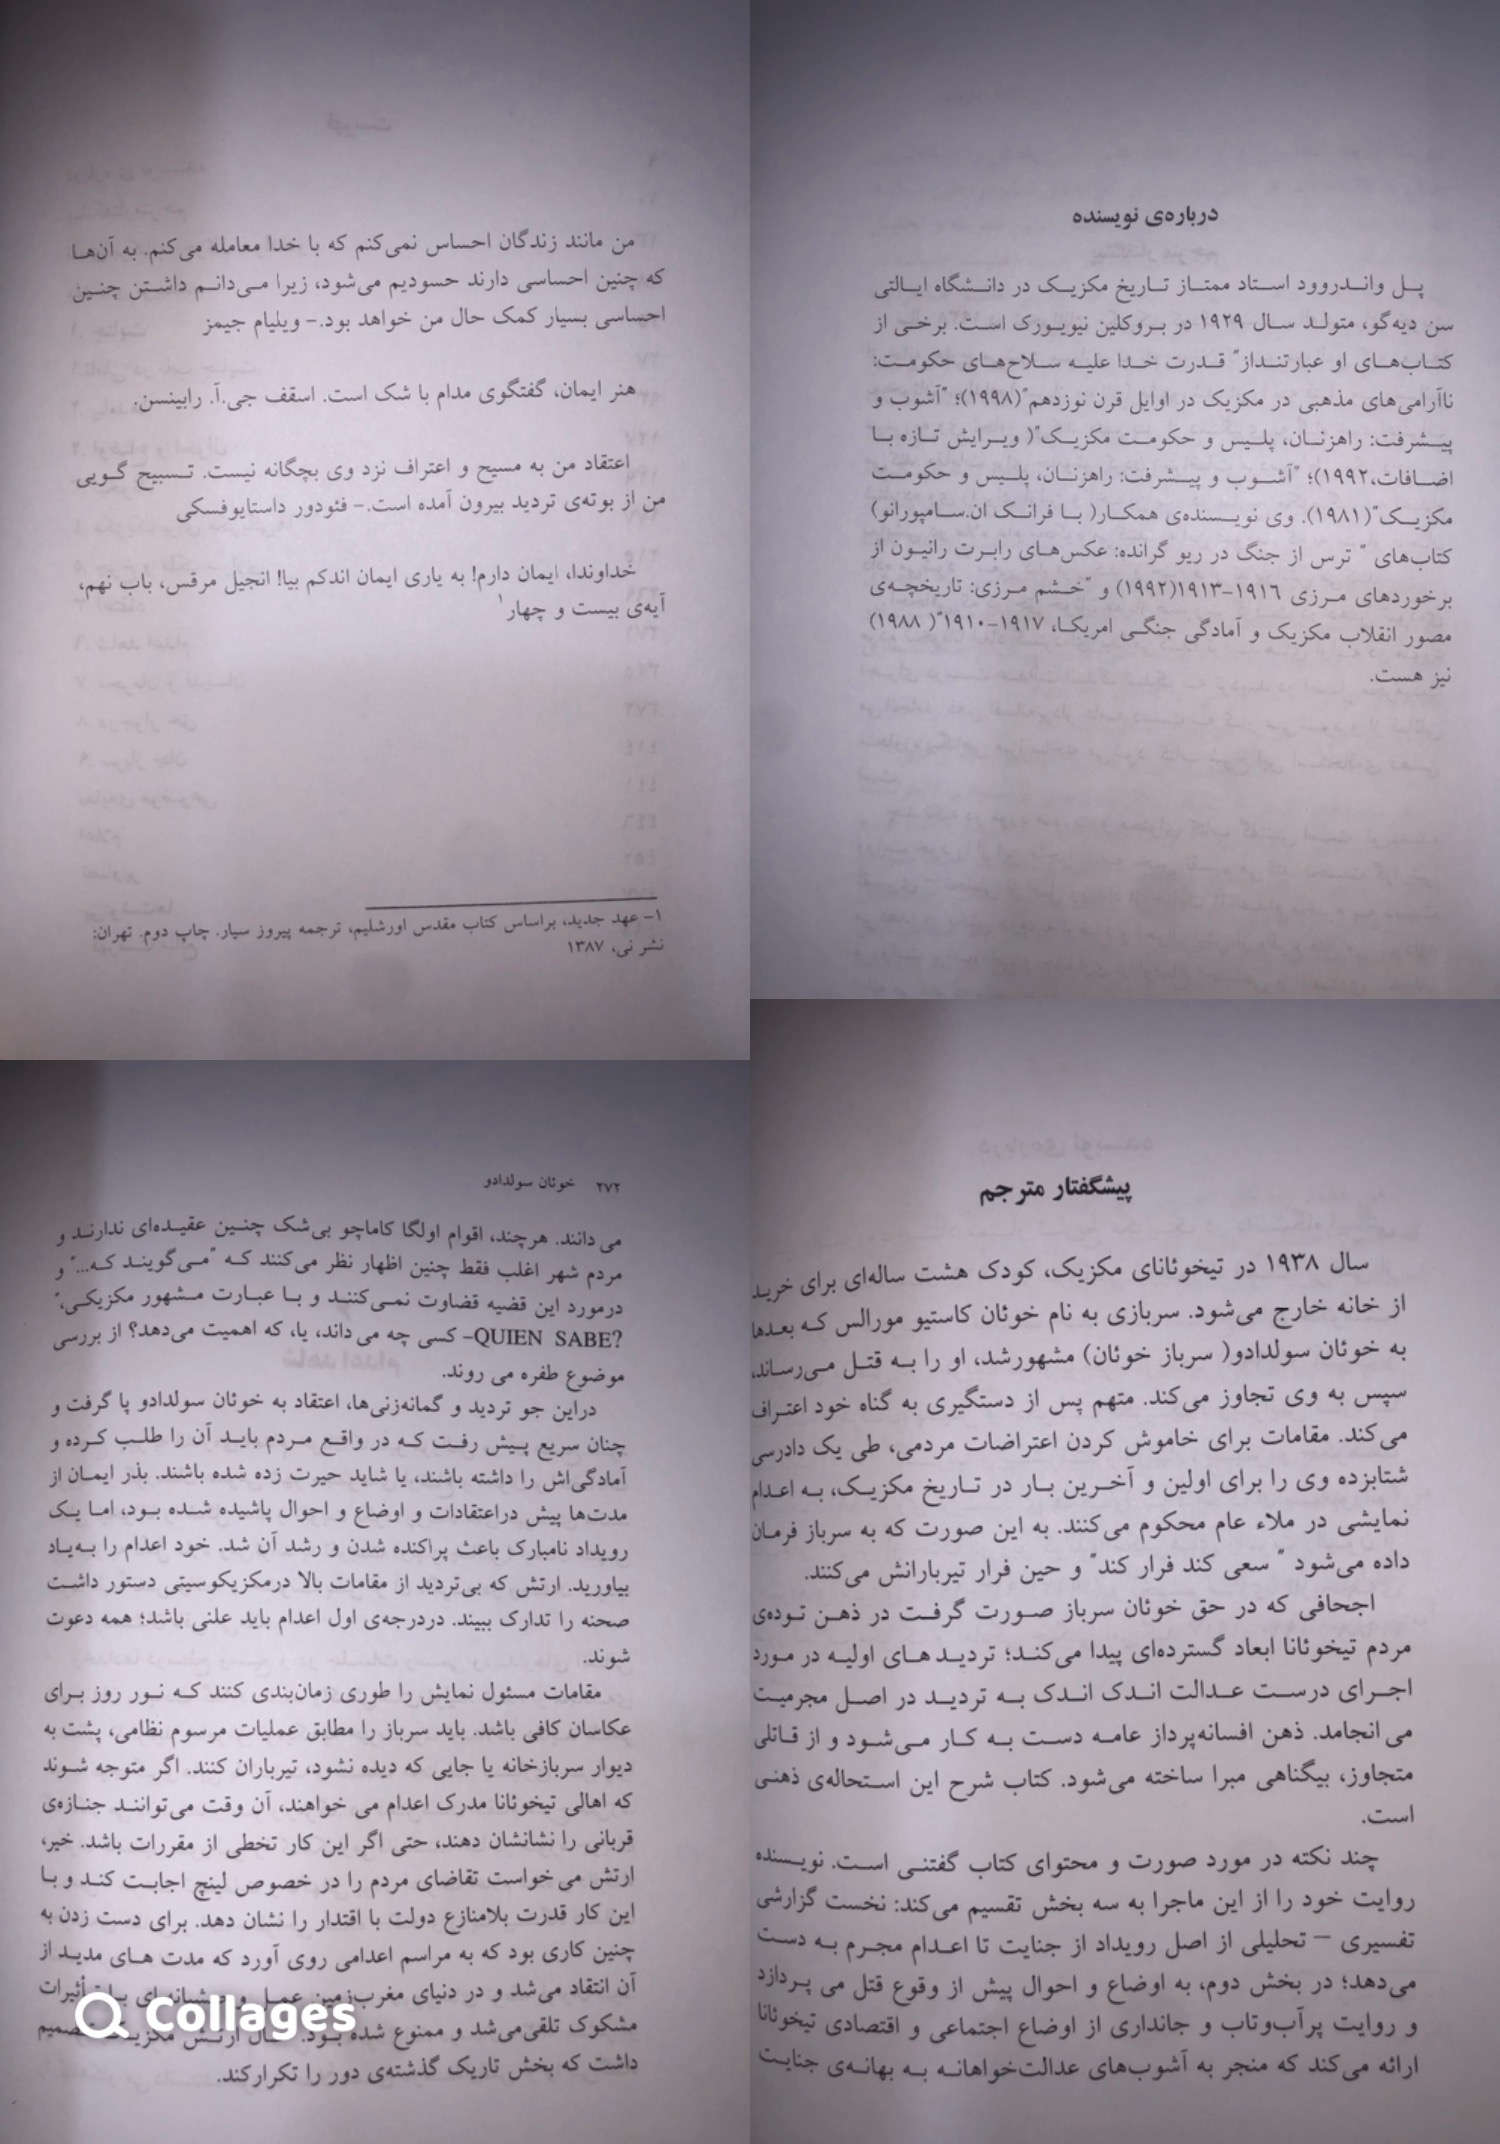 من مانند زندگان احساس نمی‌کنم که با خدا معامله می‌کنم. به آن‌ها
که چنین احساسی دارند حسودیم می‌شود، زیرا می‌دانم داشتن چنین
احساسی بسیار کمک حال من خواهد بود.- ویلیام جیمز
هنر ایمان، گفتگوی مدام با شک است. اسقف جی.آ. رابینسن.
اعتقاد من به مسیح و اعتراف نزد وی بچگانه نیست. تسبیح گویی
من از بوته‌ی تردید بیرون آمده است.- فئودور داستایوفسکی
خداوندا، ایمان دارم! به یاری ایمان اندکم بیا! انجیل مرقس، باب نهم،
آیه‌ی بیست و چهار۱
۱- عهد جدید، براساس کتاب مقدس اورشلیم، ترجمه پیروز سیار. چاپ دوم. تهران:
نشر نی، ۱۳۸۷
درباره‌ی نویسنده
پل واندروود استاد ممتاز تاریخ مکزیک در دانشگاه ایالتی
سن دیه‌گو، متولد سال ۱۹۲۹ در بروکلین نیویورک است. برخی از
کتاب‌های او عبارتنداز" قدرت خدا علیه سلاح‌های حکومت:
ناآرامی‌های مذهبی در مکزیک در اوایل قرن نوزدهم"(۱۹۹۸)؛ "آشوب و
پیشرفت: راهزنان، پلیس و حکومت مکزیک"( ویرایش تازه با
اضافات،۱۹۹۲)؛ "آشوب و پیشرفت: راهزنان، پلیس و حکومت
مکزیک"(۱۹۸۱). وی نویسنده‌ی همکار( با فرانک ان.سامپورانو)
کتاب‌های " ترس از جنگ در ریو گرانده: عکس‌های رابرت رانیون از
برخوردهای مرزی ۱۹۱۶-۱۹۱۳(۱۹۹۲) و "خشم مرزی: تاریخچه‌ی
مصور انقلاب مکزیک و آمادگی جنگی امریکا، ۱۹۱۷-۱۹۱۰"( ۱۹۸۸)
نیز هست.
۲۷۲ خوئان سولدادو
می دانند. هرچند، اقوام اولگا کاماچو بی‌شک چنین عقیده‌ای ندارند و
مردم شهر اغلب فقط چنین اظهار نظر می‌کنند که "می‌گویند که..." و
درمورد این قضیه قضاوت نمی‌کنند و با عبارت مشهور مکزیکی،"
QUIEN SABE?- کسی چه می داند، یا، که اهمیت می‌دهد؟ از بررسی
موضوع طفره می روند.
دراین جو تردید و گمانه‌زنی‌ها، اعتقاد به خوئان سولدادو پا گرفت و
چنان سریع پیش رفت که در واقع مردم باید آن را طلب کرده و
آمادگی‌اش را داشته باشند، یا شاید حیرت زده شده باشند. بذر ایمان از
مدت‌ها پیش دراعتقادات و اوضاع و احوال پاشیده شده بود، اما یک
رویداد نامبارک باعث پراکنده شدن و رشد آن شد. خود اعدام را به‌یاد
بیاورید. ارتش که بی‌تردید از مقامات بالا درمکزیکوسیتی دستور داشت
صحنه را تدارک ببیند. دردرجه‌ی اول اعدام باید علنی باشد؛ همه دعوت
شوند.
مقامات مسئول نمایش را طوری زمان‌بندی کنند که نور روز برای
عکاسان کافی باشد. باید سرباز را مطابق عملیات مرسوم نظامی، پشت به
دیوار سربازخانه یا جایی که دیده نشود، تیرباران کنند. اگر متوجه شوند
که اهالی تیخوئانا مدرک اعدام می خواهند، آن وقت می‌توانند جنازه‌ی
قربانی را نشانشان دهند، حتی اگر این کار تخطی از مقررات باشد. خیر،
ارتش می خواست تقاضای مردم را در خصوص لینچ اجابت کند و با
این کار قدرت بلامنازع دولت با اقتدار را نشان دهد. برای دست زدن به
چنین کاری بود که به مراسم اعدامی روی آورد که مدت های مدید از
آن انتقاد می‌شد و در دنیای مغرب‌زمین عمل تأثیرات
مشکوک تلقی‌می‌شد و ممنوع شده بود. ارتش تصمیم
داشت که بخش تاریک گذشته‌ی دور را تکرارکند.
Collages
پیشگفتار مترجم
سال ۱۹۳۸ در تیخوئانای مکزیک، کودک هشت ساله‌ای برای خرید
از خانه خارج می‌شود. سربازی به نام خوئان کاستیو مورالس که بعدها
به خوئان سولدادو( سرباز خوئان) مشهورشد، او را به قتل می‌رساند،
سپس به وی تجاوز می‌کند. متهم پس از دستگیری به گناه خود اعتراف
می‌کند. مقامات برای خاموش کردن اعتراضات مردمی، طی یک دادرسی
شتابزده وی را برای اولین و آخرین بار در تاریخ مکزیک، به اعدام
نمایشی در ملاء عام محکوم می‌کنند. به این صورت که به سرباز فرمان
داده می‌شود " سعی کند فرار کند" و حین فرار تیربارانش می‌کنند.
اجحافی که در حق خوئان سرباز صورت گرفت در ذهن توده‌ی
مردم تیخوئانا ابعاد گسترده‌ای پیدا می‌کند؛ تردیدهای اولیه در مورد
اجرای درست عدالت اندک اندک به تردید در اصل مجرمیت
می انجامد. ذهن افسانه‌پرداز عامه دست به کار می‌شود و از قاتلی
متجاوز، بیگناهی مبرا ساخته می‌شود. کتاب شرح این استحاله‌ی ذهنی
است.
چند نکته در مورد صورت و محتوای کتاب گفتنی است. نویسنده
روایت خود را از این ماجرا به سه بخش تقسیم می‌کند: نخست گزارشی
تفسیری – تحلیلی از اصل رویداد از جنایت تا اعدام مجرم به دست
می‌دهد؛ در بخش دوم، به اوضاع و احوال پیش از وقوع قتل می پردازد
و روایت پرآب‌وتاب و جانداری از اوضاع اجتماعی و اقتصادی تیخوئانا
ارائه می‌کند که منجر به آشوب‌های عدالت‌خواهانه به بهانه‌ی جنایت